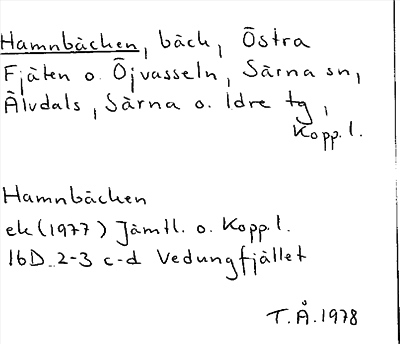 Hamnbäcken, bäck, Östra
Fjäten o. Öjvasseln, Särna sn,
Älvdals, Särna o. Idre tg,
Kopp. l.
Hamnbäcken
ek (1977) Jämtl. o. Kopp. l.
16D 2-3 c-d Vedungfjället
T.Å. 1978